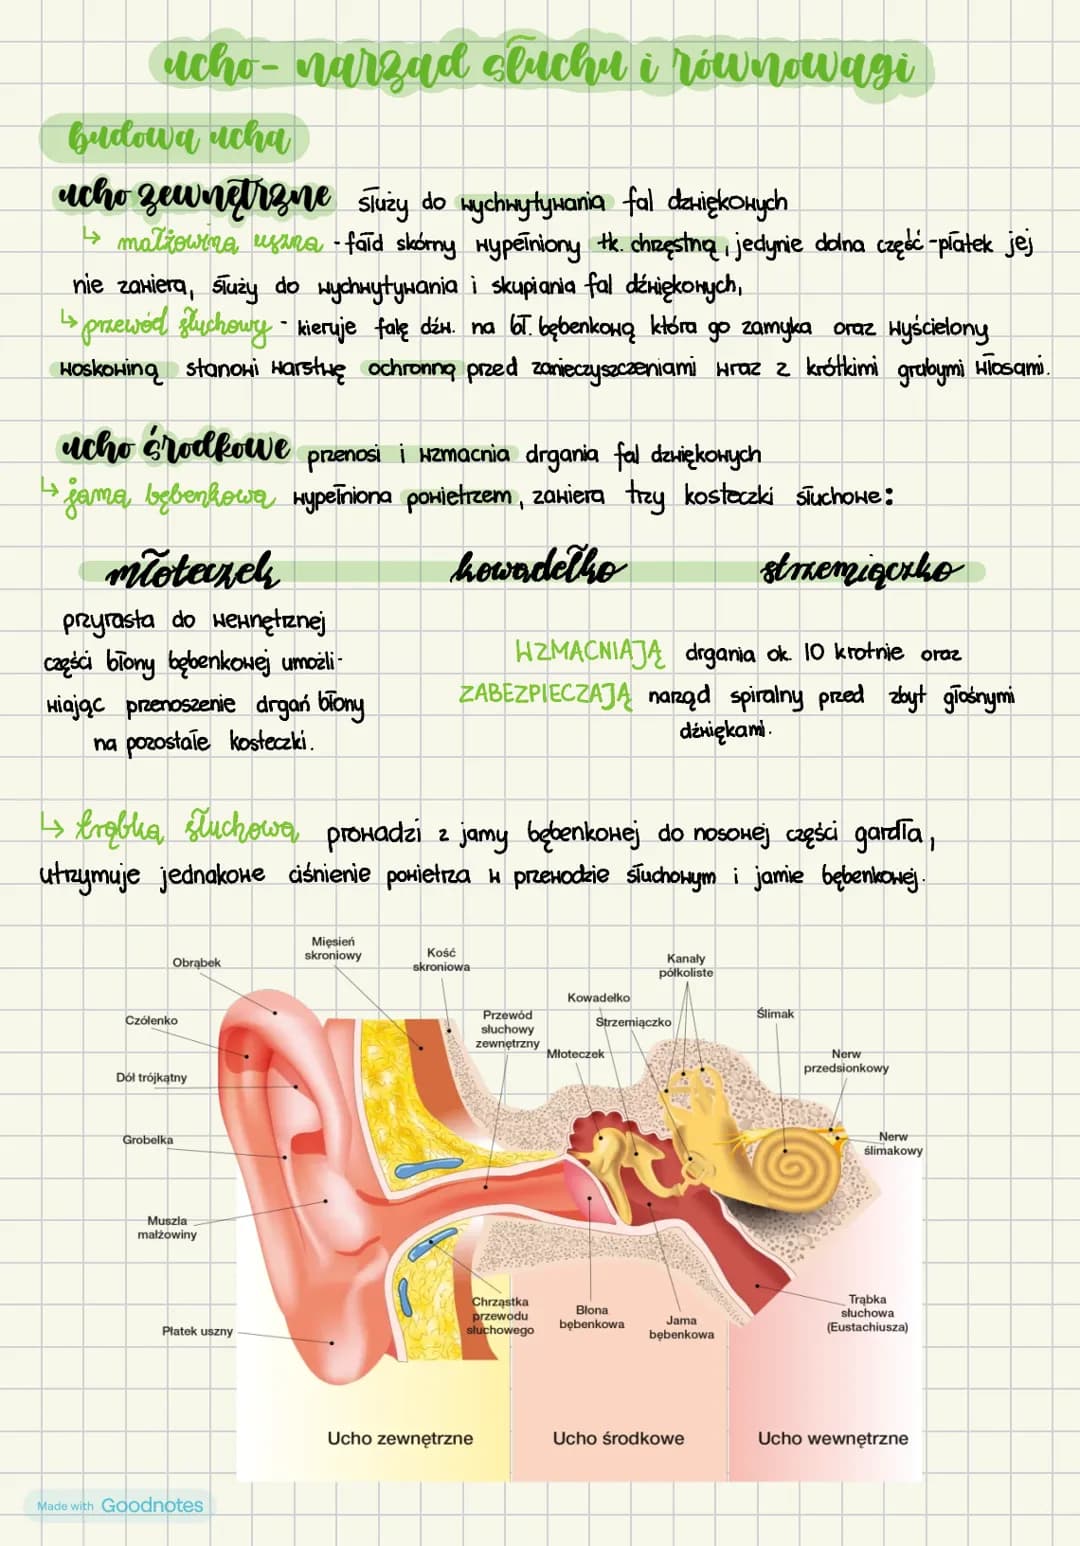 ucho- narząd słuchu i równowagi
budowa ucha
ucho zewnętrzne służy do wychwytywania fal dzwiękowych
↳ małżowina uszna - fałd skórny wypełniony tk. chrzęstną, jedynie dolna część -płatek jej
nie zawiera, służy do wychwytywania i skupiania fal dźwiękowych,
↳ przewód słuchowy - kieruje falę dźw. na bł. bębenkową która go zamyka oraz wyścielony
woskowiną stanowi warstwę ochronną przed zanieczyszczeniami wraz z krótkimi grubymi włosami.
ucho środkowe przenosi i wzmacnia drgania fal dzwiękowych
↳ jama bębenkowa wypełniona powietrzem, zawiera trzy kosteczki słuchowe:
młoteczek kowadełko strzemiączko
przyrasta do wewnętrznej
części błony bębenkowej umożli-
wiając przenoszenie drgań błony
na pozostałe kosteczki.
WZMACNIAJĄ drgania ok. 10 krotnie oraz
ZABEZPIECZAJĄ narząd spiralny przed zbyt głośnymi
dźwiękami.
↳ trąbka słuchowa prowadzi z jamy bębenkowej do nosowej części gardła,
utrzymuje jednakowe ciśnienie powietrza w przewodzie słuchowym i jamie bębenkowej.
Obrąbek
Mięsień
skroniowy
Kość
skroniowa
Kanały
półkoliste
Czółenko
Przewód
słuchowy
zewnętrzny
Kowadełko
Strzemiączko
Młoteczek
Ślimak
Nerw
przedsionkowy
Dół trójkątny
Grobelka
Nerw
ślimakowy
Muszla
małżowiny
Płatek uszny
Chrząstka
przewodu
słuchowego
Błona
bębenkowa
Jama
bębenkowa
Trąbka
słuchowa
(Eustachiusza)
Ucho zewnętrzne
Ucho środkowe
Ucho wewnętrzne
Made with Goodnotes